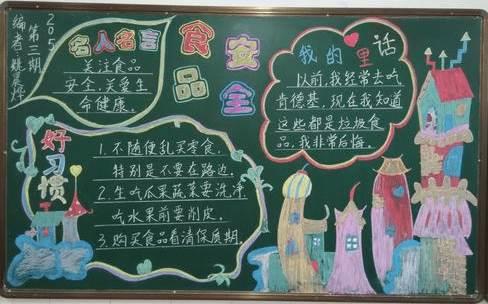 食品安全
名人名言
关注食品
安全,关爱生
命健康。
我的心里话
以前,我经常去吃
肯德基,现在我知道
这些都是垃圾食
品,我非常后悔。
好习惯
1.不随便乱买零食,
特别是不要在路边。
2.生吃瓜果蔬菜要洗净,
吃水果前要削皮。
3.购买食品看清保质期。
第三期
编者: